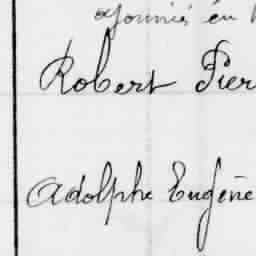 en
Robert Pier
Adolphe Eugène